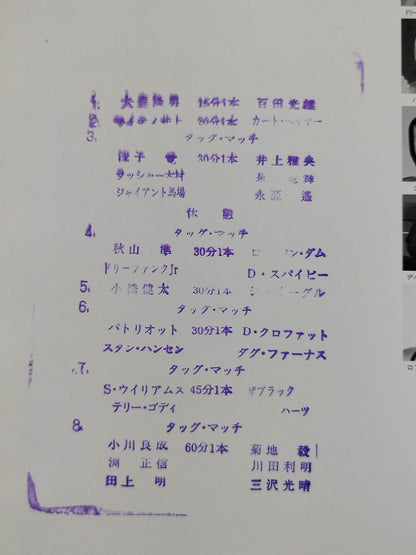 1. 大森隆男 15分1本 百田光雄
2. マイティ井上 20分1本 カート・ヘイマー
3.
タッグ・マッチ
30分1本 井上雅央
ラッシャー木村
ジャイアント馬場 永源 遥
休憩
4. タッグ・マッチ
秋山 準 30分1本 ダム
ドリーファンクJr D・スパイビー
5. 小橋健太 30分1本 イーグル
6. タッグ・マッチ
パトリオット 30分1本 D・クロファット
スタン・ハンセン ダグ・ファーナス
7. タッグ・マッチ
S・ウイリアムス 45分1本 ザブラック
テリー・ゴディ ハーツ
8. タッグ・マッチ
小川良成 60分1本 菊地 毅
渕 正信 川田利明
田上 明 三沢光晴
ドリー